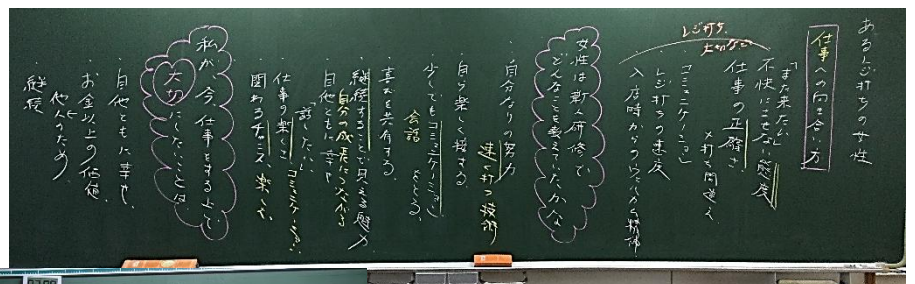 あるレジ打ちの女性
仕事への向き合い方
レジ打ち
大切なこと
「また来たい」
不快にさせない態度
仕事の正確さ
×打ち間違え
コミュニケーション
レジ打ちの速度
女性は新人研修で、
どんなことを教えていたのかな
自分なりの努力
速く打つ技術
自ら楽しく接する
少しでも「コミュニケーション」
会話 をとる。
喜びを共有する。
継続することで見える魅力
自分の成長につながる
自他ともに幸せ
「話したい」
仕事の楽しさ コミュニケーション
関わるチャンス 楽しむ
私が、今、仕事をする上で
大切にしたいことは
自他ともに幸せ
お金以上の価値
他人のため
継続